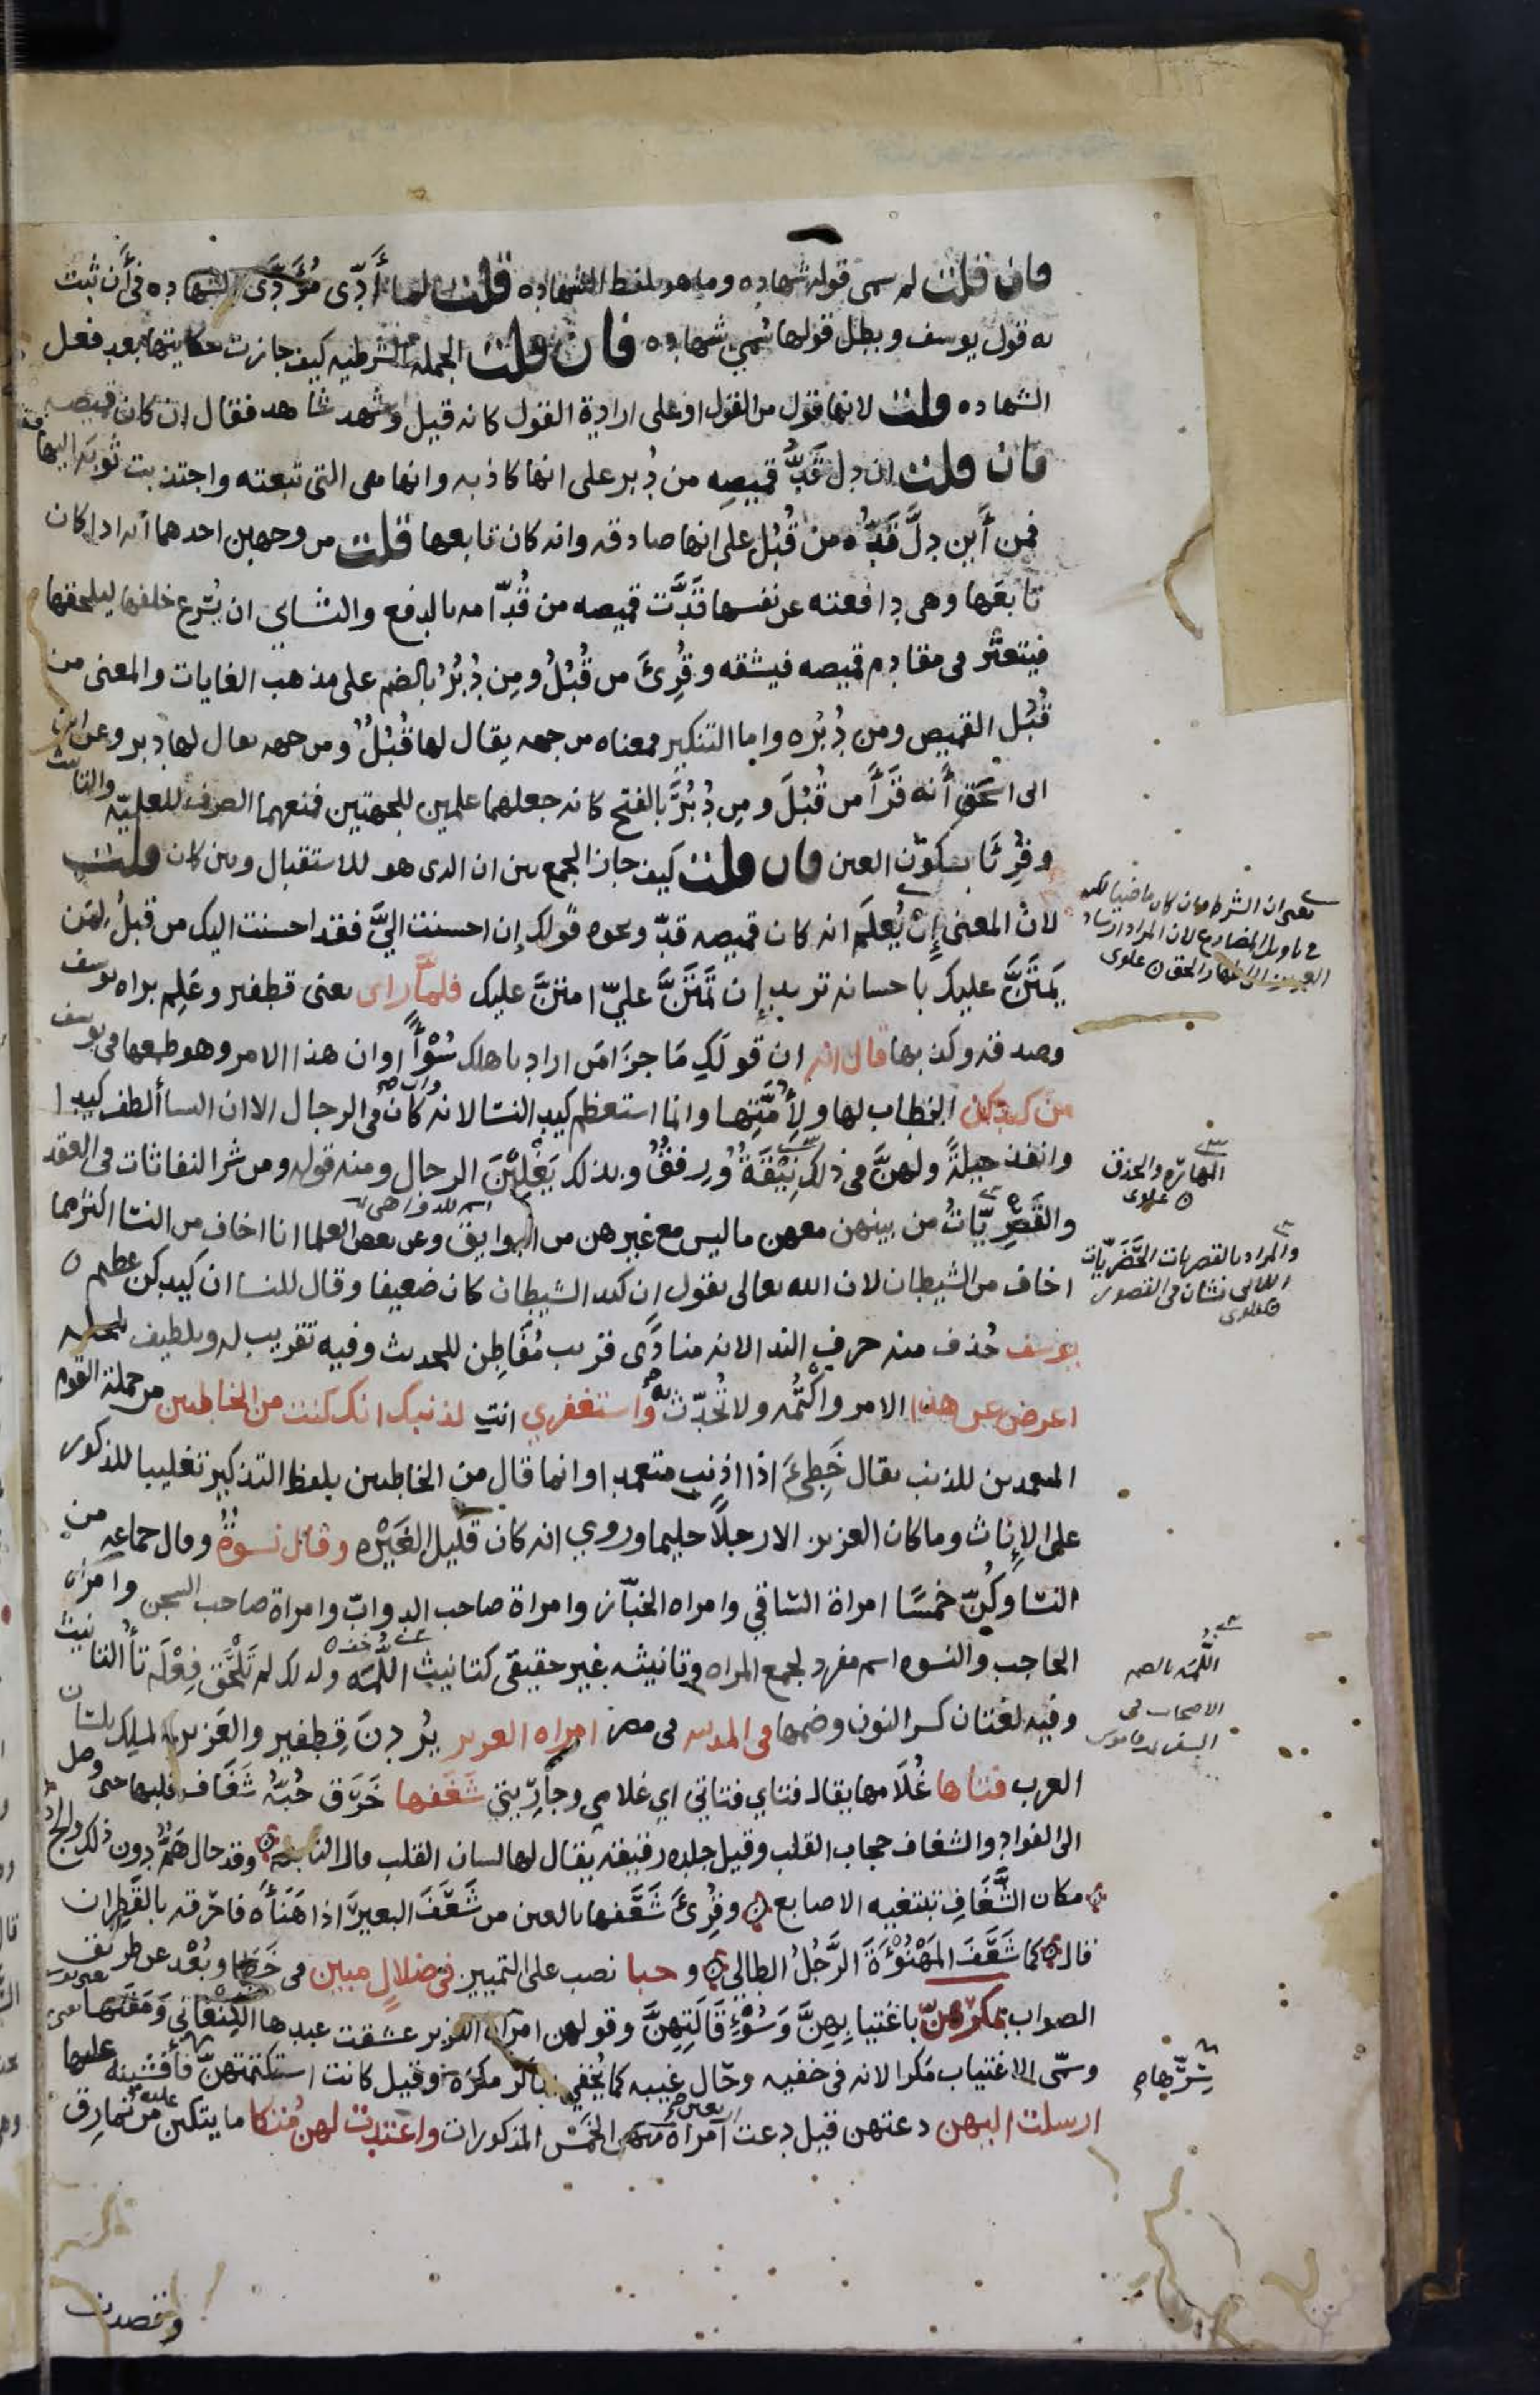 فان قلت لم سمى قوله شهاده وما هو بلفظ الشهاده قلت لما أدّى مُؤَدَّى الشهاده فى أن ثبت
به قول يوسف وبطل قولها سُمي شهاده فان قلت الجمله الشرطيه كيف جازت حكايتها بعد فعل
الشهاده قلت لانها قول من القول او على ارادة القول كانه قيل وشهد شاهد فقال إن كان قميصه
فان قلت ان دل قَدُّ قميصه من دُبر على انها كاذبه وانها هى التى تبعته واجتذبت ثوبَه اليها
فمن أين دلَّ قَدُّه من قُبُل على انها صادقه وانه كان تابعها قلت من وجهين احدهما انه اذا كان
تابعَها وهى دافعته عن نفسها قَدَّت قميصه من قُدّامه بالدفع والثانى ان يُسْرع خلفها ليلحقها
فيتعثّر فى مقادم قميصه فيشقه وقُرِئَ من قُبُلُ ومِن دُبُرُ بالضم على مذهب الغايات والمعنى من
قُبُل القميص ومن دُبُره واما التنكير فمعناه من جهه يقال لها قُبُلٌ ومن جهه يقال لها دبر وعن ابن
ابى اسحق أنه قَرَأ من قُبُلَ ومن دُبُرَ بالفتح كانه جعلهما علمين للجهتين فمنعهما الصرف للعلميّه والتانيث
وقُرِئَا بسكون العين فان قلت كيف جاز الجمع بين ان الذى هو للاستقبال وبين كان قلت
لان المعنى إن يُعلَم انه كان قميصه قدّ ونحوه قولك إن احسنت اليَّ فقد احسنت اليك من قبلُ لمَن
يَمتَنُّ عليك باحسانه تريد إن تَمتَنَّ عليّ امتنَّ عليك فلمّا راى يعنى قطفير وعَلِم براه يوسف
وصدقه وكذبها قال انه ان قولَكِ مَا جزَا مَن اراد باهلك سُوْأً او ان هذا الامر وهو طمعها فى يوسف
من كيدكن الخطاب لها ولأُمَّتِها وانما استعظم كيد النسا لانه وان كان فى الرجال الا ان النسا ألطف كيدا
وانفذ حيلةً ولهنَّ فى ذلك نِيْقَةٌ ورفقٌ وبذلك يَغْلِبْنَ الرجال ومنه قوله ومن شر النفاثات فى العقد
والقَصْرِيّاتُ من بينهن معهن ما ليس مع غيرهن من البوايق وعن بعض العلما انا اخاف من النسا اكثر مما
اخاف من الشيطان لان الله تعالى يقول إن كيد الشيطان كان ضعيفا وقال للنسا ان كيدكن عظيم
يوسف حُذف منه حرف الندا لانه منادًى قريب مُفَاطِن للحديث وفيه تقريب له وتلطيف لمحله
اعرض عن هذا الامر واكتُمْه ولا تُحدّث به واستغفري انتِ لذنبك انك كنت من الخاطئين من جملة القوم
المتعمدين للذنب يقال خَطِئَ اذا اذنب متعمدا وانما قال من الخاطئين بلفظ التذكير تغليبا للذكور
على الإناث وما كان العزيز الا رجلًا حليما وروي انه كان قليل الغَيْرَه وقال نسوةٌ وقال جماعه من
النسا وكُنّ خمسًا امراة الساقي وامراه الخبّاز وامراة صاحب الدوابّ وامراة صاحب السجن وامراه
الحاجب والنسوه اسم مفرد لجمع المراه وتانيثه غير حقيقى كتانيث اللُّمَه ولذلك لم تَلْحَق فِعْلَه تأُ التانيث
وفيه لغتان كسر النون وضمها فى المدينه فى مصر امراه العزيز يُرِدنَ قِطفير والعَزيز الملِك بلسان
العرب فتاها غُلَامها يقال فتاي فتاتي اي غلامى وجارِيتي شَغَفها خَرَق حُبّهُ شَغَاف قلبها حتى وصل
الى الفواد والشغاف حجاب القلب وقيل جلده رقيقه يقال لها لسان القلب قال النابغه وقد حال هَمٌّ دون ذلك والج
مكان الشَّغَافِ تبتغيه الاصابع وقُرِئَ شَعَفها بالعين من شَعَفَ البعيرَ اذا هَنَأَه فاحرقه بالقَطِران
قال كما شَعَفَ المَهْنُوْءَةَ الرَّجُلُ الطالي وحبا نصب على التمييز فى ضلال مبين فى خَطَا وبُعْد عن طريق
الصواب بمكرهنّ باغتيابِهِنَّ وَسُوْءِ قَالَتِهِنَّ وقولهن امراه العزيز عشقت عبدها الكِنعاني وَمَقَتَها
وسمّى الاغتياب مكرا لانه فى خفيه وحَال غيبه كما يُخفى الماكر مكرَه وقيل كانت استكتمتهنّ سِرَّها فأفشَينه عليها
ارسلت اليهن دعتهن قيل دعت اربعين امراه منهن الخَمْس المذكورات واعتدت لهن مُتكا ما يتكين عليه من نمارِق
وقصدت
يعنى ان الشرط وان كان ماضيا لكنه
فى تاويل المضارع لان المراد ارشاد
العزيز الى اظهار الحق علوى
المهاره والحذق
علوى
والمراد بالقصريات الحَضَريّات
اللاتى نشان فى القصور
علوى
اللُّمَه بالضم
الاصحاب فى
السفر قاموس
سِرَّها